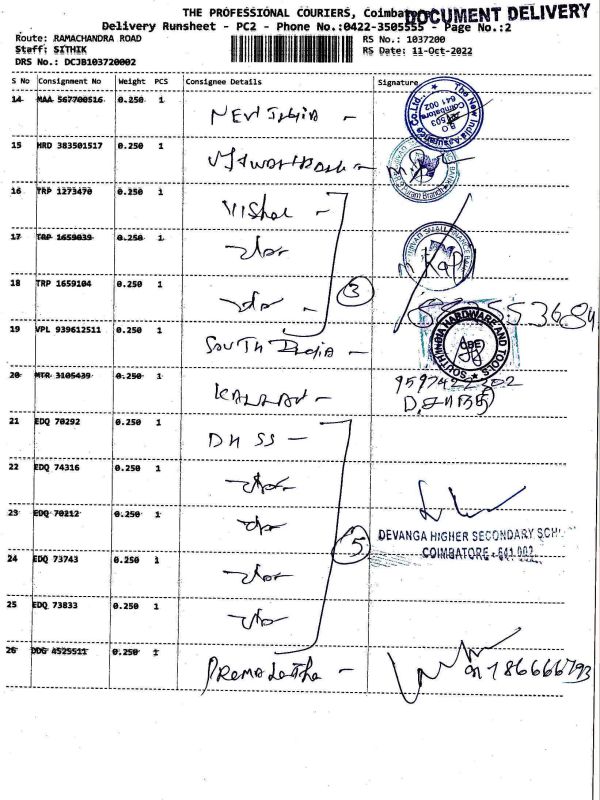 THE PROFESSIONAL COURIERS, Coimbatore
DOCUMENT DELIVERY
Delivery Runsheet - PC2 - Phone No.:0422-3505555 - Page No.:2
Route: RAMACHANDRA ROAD
RS No.: 1037200
Staff: SITHIK
RS Date: 11-Oct-2022
DRS No.: DCJB103720002
S No Consignment No Weight PCS Consignee Details Signature
14 MAA 567700516 0.250 1 NEW INDIA -
The New India Assurance Co.Ltd.,
Coimbatore
641 002
15 HRD 383501517 0.250 1
16 TRP 1273470 0.250 1 Vishal -
17 TRP 1659039 0.250 1
18 TRP 1659104 0.250 1
3
19 VPL 939612511 0.250 1 SOUTH India -
SOUTH INDIA HARDWARE AND TOOLS
CBE
20 MTR 3105439 0.250 1
9597422202
21 EDQ 70292 0.250 1 DHSS -
22 EDQ 74316 0.250 1
23 EDQ 70212 0.250 1
5
DEVANGA HIGHER SECONDARY
COIMBATORE - 641 002
24 EDQ 73743 0.250 1
25 EDQ 73833 0.250 1
26 DDG 4525511 0.250 1 Premalatha -